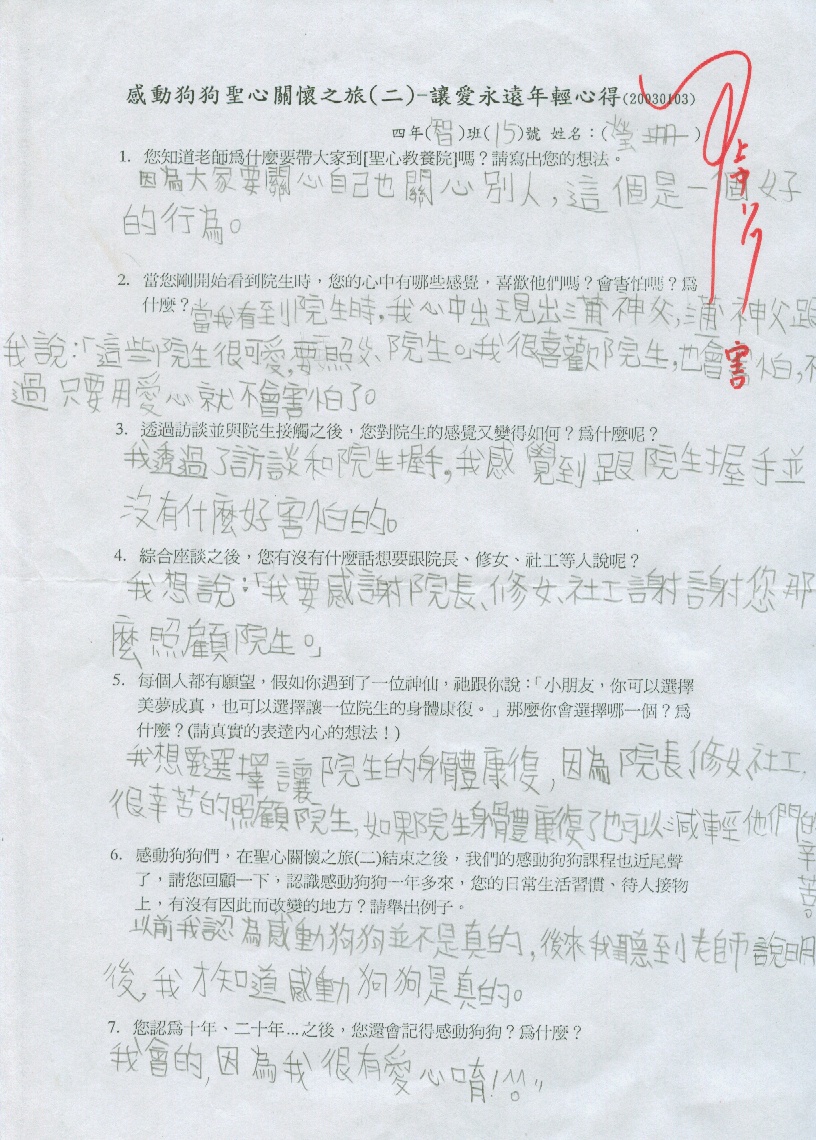 感動狗狗聖心關懷之旅(二)-讓愛永遠年輕心得(20030103)
四年(智)班(15)號 姓名:(瑩珊)
1. 您知道老師為什麼要帶大家到[聖心教養院]嗎?請寫出您的想法。
因為大家要關心自己也關心別人,這個是一個好
的行為。
2. 當您剛開始看到院生時,您的心中有哪些感覺,喜歡他們嗎?會害怕嗎?為
什麼?當我看到院生時,我心中出現出蒲神父,蒲神父跟
我說:「這些院生很可愛,要照父、院生。」我很喜歡院生,也會害怕,不
害
過只要用愛心就不會害怕了。
3. 透過訪談並與院生接觸之後,您對院生的感覺又變得如何?為什麼呢?
我透過了訪談和院生握手,我感覺到跟院生握手並
沒有什麼好害怕的。
4. 綜合座談之後,您有沒有什麼話想要跟院長、修女、社工等人說呢?
我想說:「我要感謝院長、修女、社工謝謝您那
麼照顧院生。」
5. 每個人都有願望,假如你遇到了一位神仙,祂跟你說:「小朋友,你可以選擇
美夢成真,也可以選擇讓一位院生的身體康復。」那麼你會選擇哪一個?為
什麼?(請真實的表達內心的想法!)
我想要選擇讓院生的身體康復,因為院長、修女、社工,
很辛苦的照顧院生,如果院生身體康復了也可以減輕他們的
辛苦。
6. 感動狗狗們,在聖心關懷之旅(二)結束之後,我們的感動狗狗課程也近尾聲
了,請您回顧一下,認識感動狗狗一年多來,您的日常生活習慣、待人接物
上,有沒有因此而改變的地方?請舉出例子。
以前我認為感動狗狗並不是真的,後來我聽到老師說明
後,我才知道感動狗狗是真的。
7. 您認為十年、二十年...之後,您還會記得感動狗狗?為什麼?
我會的,因為我很有愛心唷!^o^"